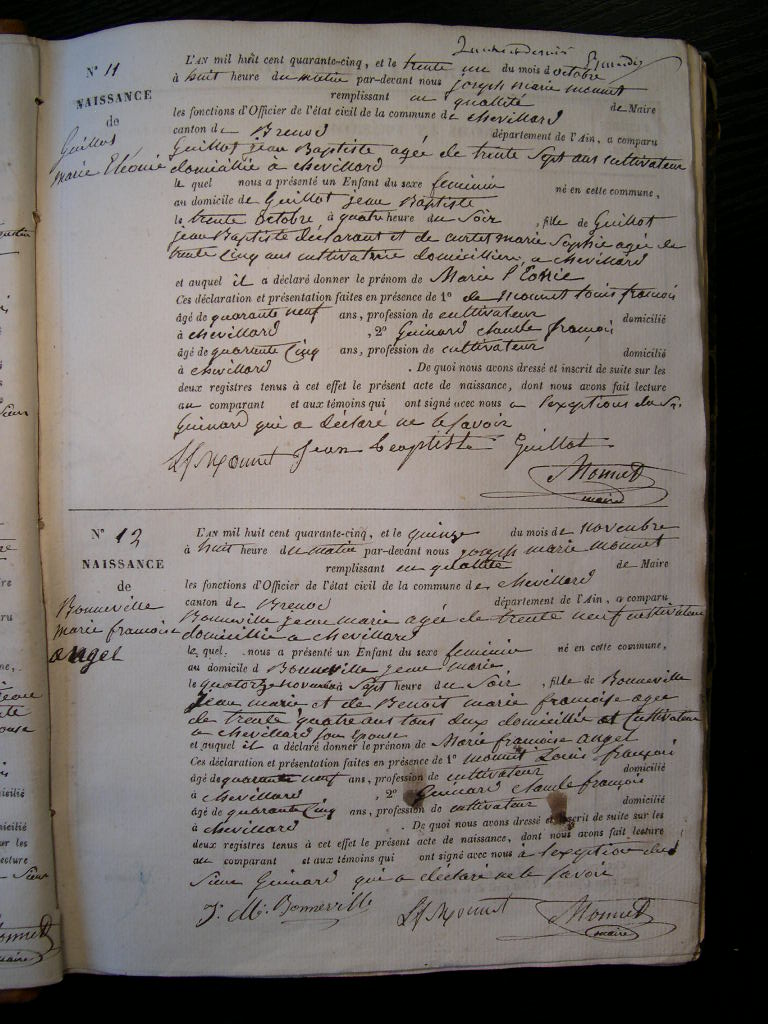 N° 11
NAISSANCE
de
Guillot
marie Eléonie
L'AN mil huit cent quarante-cinq, et le trente un du mois d'octobre
à huit heure du matin par-devant nous joseph marie monnet
remplissant en quallité de Maire
les fonctions d'Officier de l'état civil de la commune de chevillard
canton de Brenod département de l'Ain, a comparu
Guillot jean Baptiste agée de trente Sept ans cultivateur
domiciliée à chevillard
le quel nous a présenté un Enfant du sexe feminin né en cette commune,
au domicile de Guillot jean Baptiste
le trente octobre à quatre heure du Soir, fille de Guillot
jean Baptiste déclarant et de marie Sophie agée de
trente Cinq ans cultivatrice domicillien a chevillard
et auquel il a déclaré donner le prénom de Marie
Ces déclaration et présentation faites en présence de 1° de monnet Louis françois
âgé de quarante neuf ans, profession de cultivateur domicilié
à chevillard, 2° Guinard claude françois
âgé de quarante Cinq ans, profession de cultivateur domicilié
à chevillard. De quoi nous avons dressé et inscrit de suite sur les
deux registres tenus à cet effet le présent acte de naissance, dont nous avons fait lecture
au comparant et aux témoins qui ont signé avec nous a l'exceptions du Sr.
Guinard qui a déclaré ne le savoir
Lf Monnet Jean Beaptiste Guillot
Monnet
maire
N° 12
NAISSANCE
de
Bonneville
marie francoise
angel
L'AN mil huit cent quarante-cinq, et le quinze du mois de novembre
à huit heure du matin par-devant nous joseph marie monnet
remplissant en quallité de Maire
les fonctions d'Officier de l'état civil de la commune de chevillard
canton de Brenod département de l'Ain, a comparu
Bonneville jean marie agée de trente neuf cultivateur
domicillié a chevillard
le quel nous a présenté un Enfant du sexe feminin né en cette commune,
au domicile d Bonneville jean marie
le quatorze novembre à Sept heure du Soir, fille de Bonneville
jean marie et de Benoit marie françoise agee
de trente quatre ans tous deux domicillié et Cultivateur
a chevillard son Epouse
et auquel il a déclaré donner le prénom de Marie francoise angel
Ces déclaration et présentation faites en présence de 1° monnet Louis françois
âgé de quarante neuf ans, profession de cultivateur domicilié
à chevillard, 2° Guinard claude françois
âgé de quarante Cinq ans, profession de cultivateur domicilié
à chevillard. De quoi nous avons dressé et inscrit de suite sur les
deux registres tenus à cet effet le présent acte de naissance, dont nous avons fait lecture
au comparant et aux témoins qui ont signé avec nous à l'exception du
Sieur Guinard qui a déclaré ne le savoir
J. M. Bonneville Lf Monnet Monnet
maire